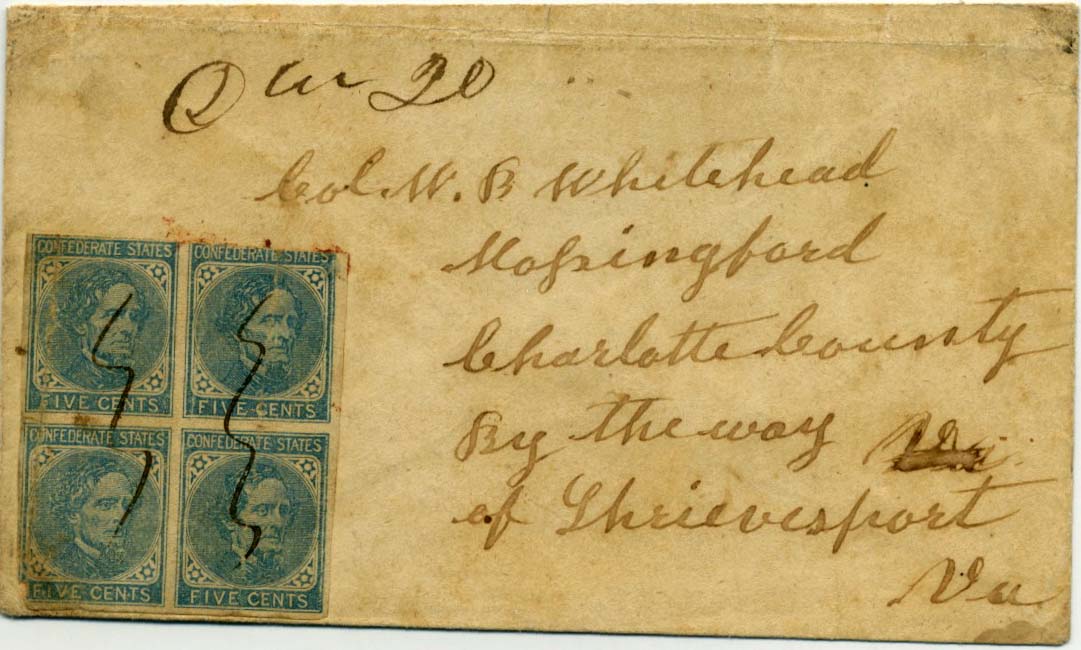 20
Col. W. B Whitehead
CONFEDERATE STATES
CONFEDERATE STATES
Mossingford
FIVE CENTS
FIVE CENTS
Charlotte County
CONFEDERATE STATES
CONFEDERATE STATES
By the way
of Shrievesport
FIVE CENTS
FIVE CENTS
Va